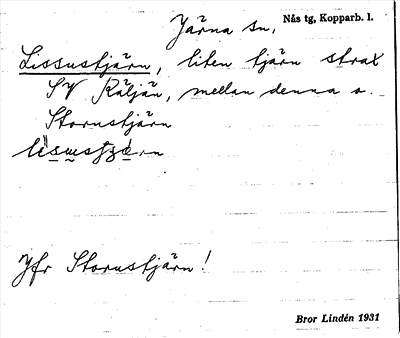 Järna sn,
Nås tg, Kopparb. l.
Lissustjärn, liten tjärn strax
SV Räljän, mellan denna o.
Stornstjärn
Jfr Stornstjärn!
Bror Lindén 1931